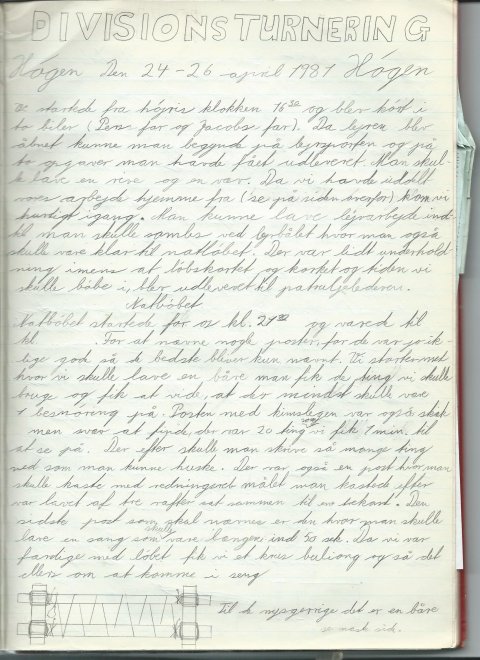 DIVISIONSTURNERING
Högen Den 24-26 april 1981 Högen
Vi startede fra højris klokken 16³⁰ og blev kört i
to biler (Pers far og Jacobs far). Da lejren blev
åbnet kunne man begynde på lejrsporten og på
to opgaver man havde fået udleveret. Man skul-
le lave en reve og en var. Da vi havde uddelt
vores arbejde hjemme fra (se på siden overfor) kom vi
hurtigt igang. Man kunne lave lejrarbejde ind-
til man skulle samles ved lejrbålet hvor man også
skulle være klar til natløbet. Der var lidt underhold-
ning imens at löbskortet og kortet og tiden vi
skulle löbe i, blev udleveret til patruljelederen.
Natlöbet
Natlöbet startede for os kl. 21³⁰ og varede til
kl. . For at nævne nogle poster, for de var jo ik-
lige gode så de bedste bliver kun nævnt. Vi starter med
hvor vi skulle lave en båre man fik de ting vi skulle
bruge og fik at vide, at der mindst skulle være
1 besnöring på. Posten med kimslegen var også skæk
men svær at finde, der var 20 ting som vi fik 1 min. til
at se på. Der efter skulle man skrive så mange ting
ned som man kunne huske. Der var også en post hvor man
skulle kaste med redningsreb målet man kastede efter
var lavet af tre rafter sat sammen til en trekant. Den
sidste post som skal nævnes er den hvor man skulle
lave en sang som skulle være längere ind 50 sek. Da vi var
færdige med löbet fik vi et krus buliong og så det
ellers om at komme i seng
Til de nysgerrige det er en båre
se næste side.